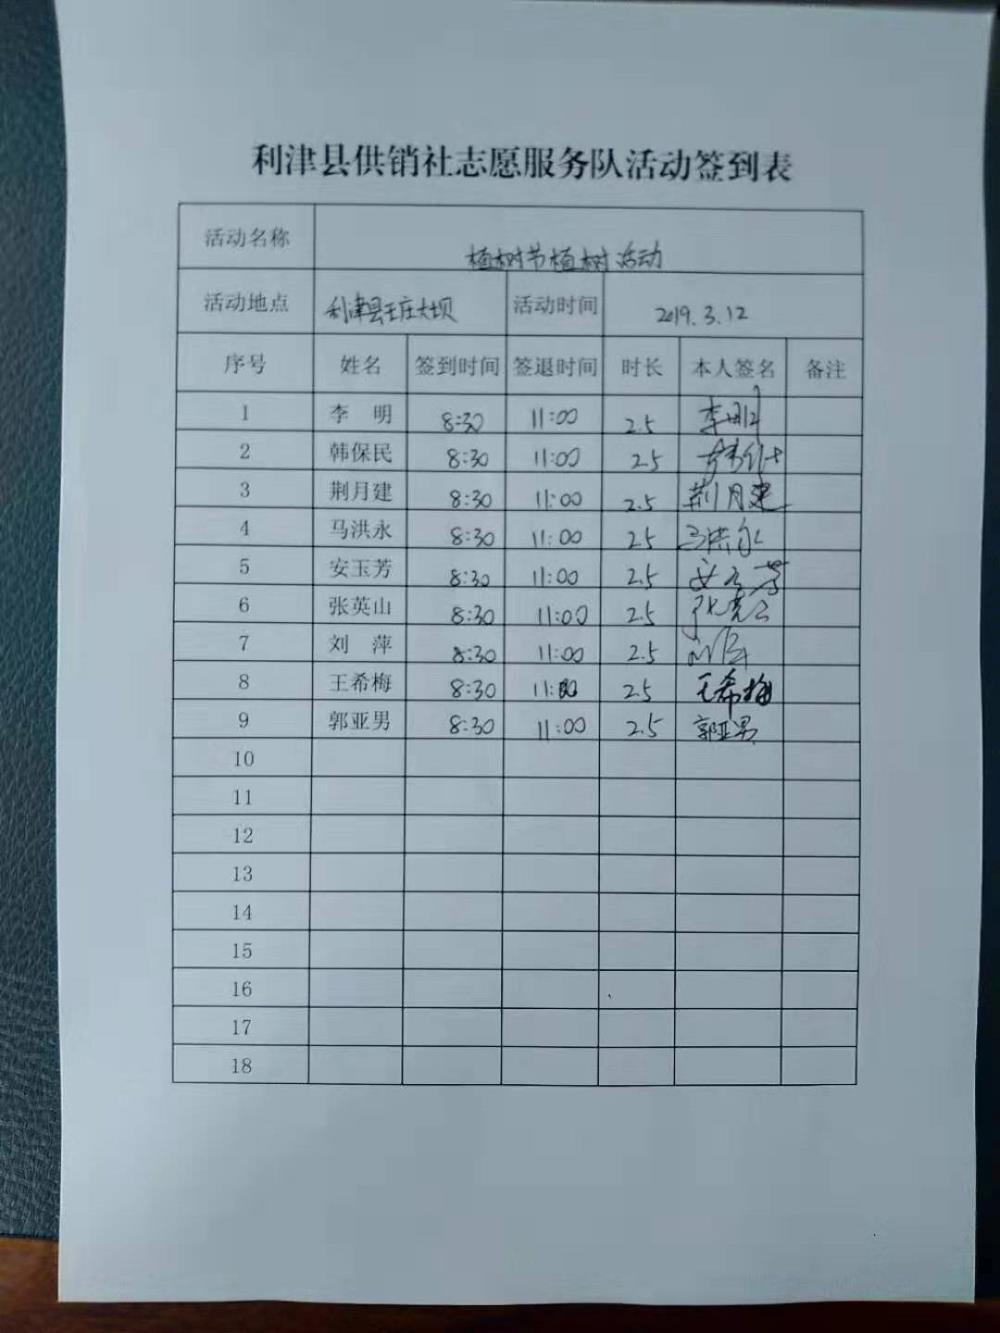 利津县供销社志愿服务队活动签到表
活动名称 植树节植树活动
活动地点 利津县王庄大坝 活动时间 2019.3.12
序号 姓名 签到时间 签退时间 时长 本人签名 备注
1 李 明 8:30 11:00 2.5 李明
2 韩保民 8:30 11:00 2.5
3 荆月建 8:30 11:00 2.5 荆月建
4 马洪永 8:30 11:00 2.5 马洪永
5 安玉芳 8:30 11:00 2.5 安玉芳
6 张英山 8:30 11:00 2.5
7 刘 萍 8:30 11:00 2.5 刘萍
8 王希梅 8:30 11:00 2.5 王希梅
9 郭亚男 8:30 11:00 2.5 郭亚男
10
11
12
13
14
15
16
17
18